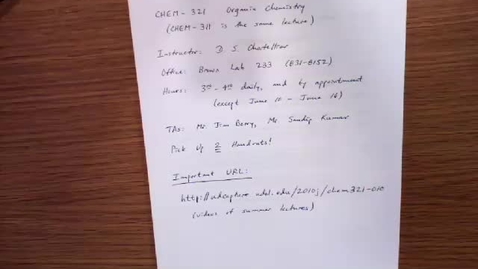 CHEM-321 Organic Chemistry
(CHEM-311 is the same lecture)
Instructor: D. S.
Office: Brown Lab 233 (831-8152)
Hours: 3rd - 4th daily, and by appointment
(except June 10 - June 16)
TAs: Mr. Jim Berry, Mr. Sandip Kumar
Pick Up 2 Handouts!
Important URL:
http://udcapture.udel.edu/2010j/chem321-010
(videos of summer lectures)